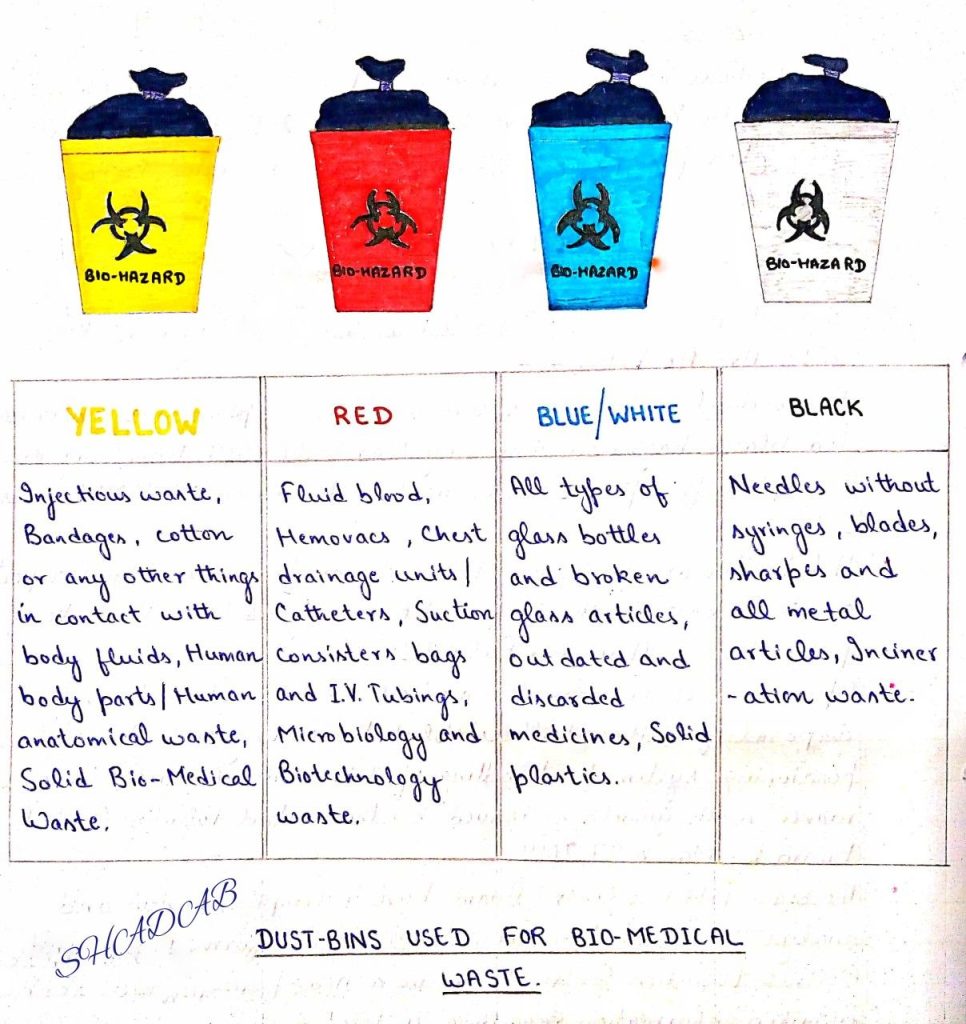 BIO-HAZARD
BIO-HAZARD
BIO-HAZARD
BIO-HAZARD
YELLOW
Injectious waste,
Bandages, cotton
or any other things
in contact with
body fluids, Human
body parts/Human
anatomical waste,
Solid Bio-Medical
Waste.
RED
Fluid blood,
Hemovacs, Chest
drainage units/
Catheters, Suction
consisters bags
and I.V. Tubings,
Microbiology and
Biotechnology
waste.
BLUE/WHITE
All types of
glass bottles
and broken
glass articles,
out dated and
discarded
medicines, Solid
plastics.
BLACK
Needles without
syringes, blades,
sharpes and
all metal
articles, Inciner
-ation waste.
SHADAB
DUST-BINS USED FOR BIO-MEDICAL
WASTE.